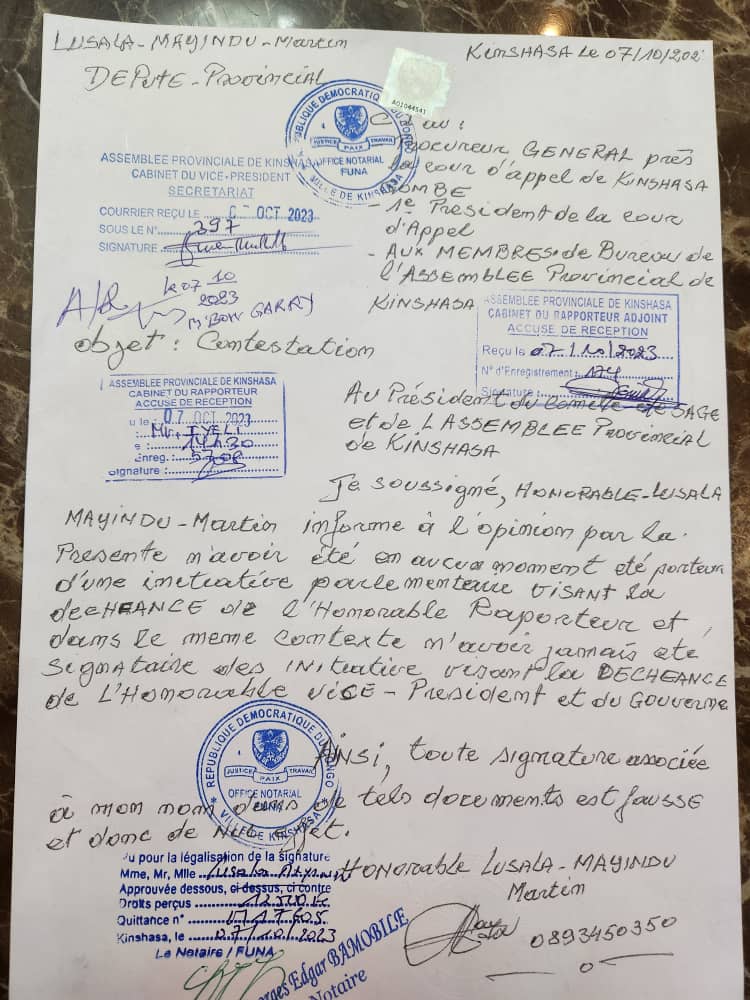 LUSALA-MAYINDU-Martin
KINSHASA Le 07/10/202
DEPUTE-Provincial
A01044541
REPUBLIQUE DEMOCRATIQUE DU CONGO
JUSTICE PAIX TRAVAIL
OFFICE NOTARIAL
FUNA
VILLE DE KINSHASA
ASSEMBLEE PROVINCIALE DE KINSHASA
CABINET DU VICE-PRESIDENT
SECRETARIAT
COURRIER REÇU LE OCT 2023
SOUS LE N° 397
SIGNATURE
Procureur GENERAL près
la cour d'appel de KINSHASA
GOMBE
- 1e President de la cour
d'Appel
- AUX MEMBRES de Bureau de
l'ASSEMBLEE Provincial de
KINSHASA
le 07 10
2023
M'BOW GARRY
ASSEMBLEE PROVINCIALE DE KINSHASA
CABINET DU RAPPORTEUR ADJOINT
ACCUSE DE RECEPTION
Reçu le 07/10/2023
N° d'Enregistrement
Signature
objet : Contestation
ASSEMBLEE PROVINCIALE DE KINSHASA
CABINET DU RAPPORTEUR
ACCUSE DE RECEPTION
u le : 07 OCT 2023
Mr. IYELI
14h30
Enreg. : 5708
Signature :
AU Président du comité de SAGE
et de L'ASSEMBLEE Provincial
de KINSHASA
Je soussigné, HONORABLE-LUSALA
MAYINDU-Martin informe à l'opinion par la
Presente n'avoir été en aucun moment eté porteur
d'une initiative parlementaire VISANT la
decHEANCE de l'Honorable Raporteur et,
dans le meme contexte n'avoir jamais eté
SIGNATAIRE des INITIATIVE VISANT la DECHEANCE
de L'Honorable VICE-President et du Gouverne
REPUBLIQUE DEMOCRATIQUE DU CONGO
JUSTICE PAIX TRAVAIL
OFFICE NOTARIAL
FUNA
VILLE DE KINSHASA
AINSI, toute signature associée
à mon nom dans de tels documents est fausse
et donc de Nul effet.
Vu pour la légalisation de la signature
Mme, Mr, Mlle Lusala
Approuvée dessous, ci dessus, ci contre
Droits perçus
Quittance n°
Kinshasa, le 07/10/2023
Le Notaire / FUNA
HONORABLE LUSALA-MAYINDU
Martin
0893450350
orges Edgar BAMOBILE
Notaire